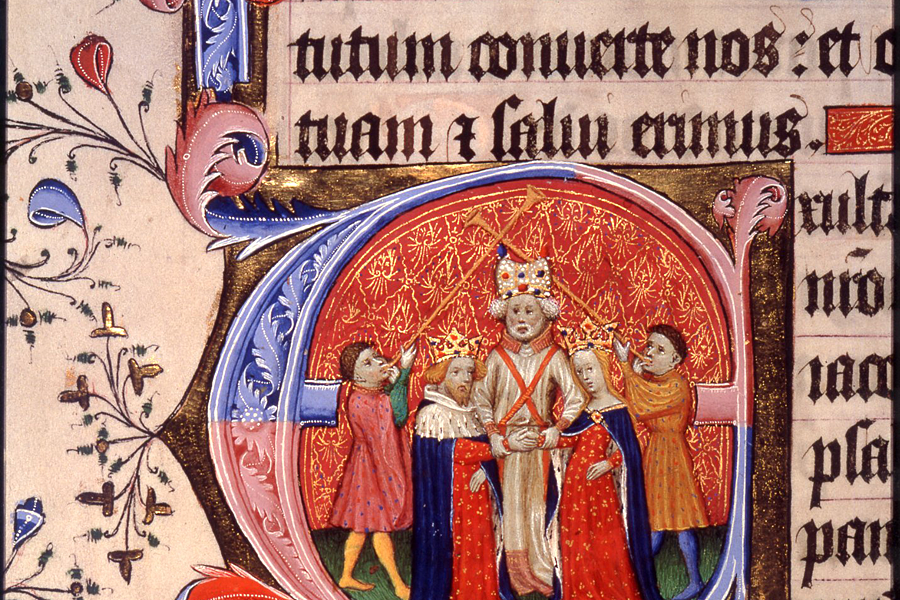 tutum conuerte nos : et o
tuam ⁊ salui erimus.
Exult
nr̄o
iaco
psa
pan